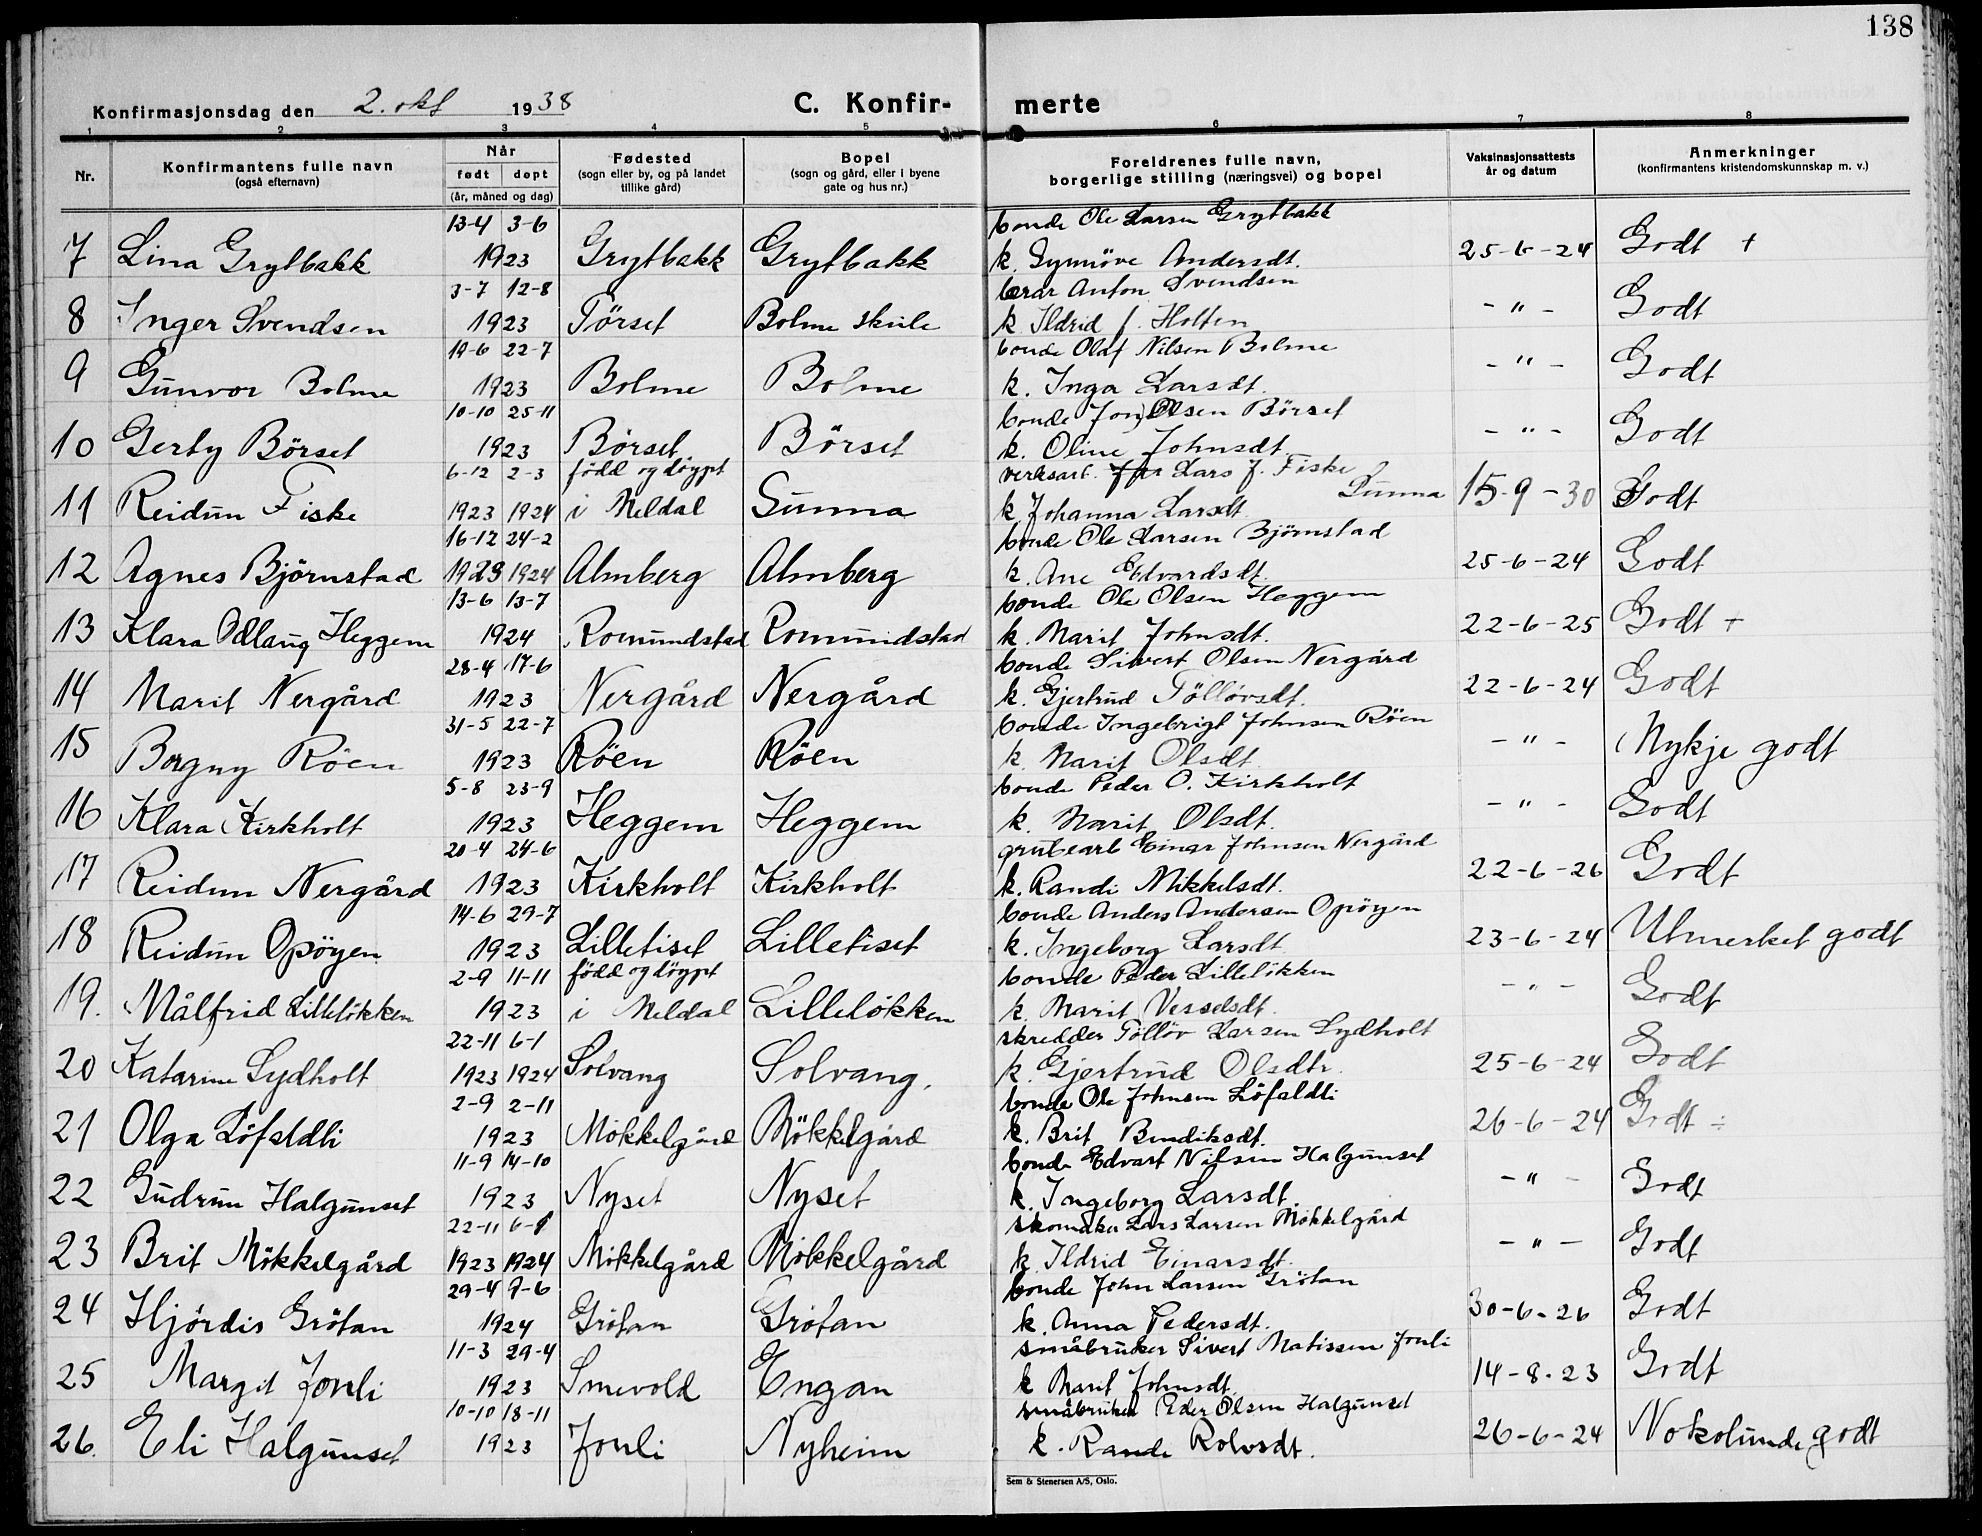 138
Konfirmasjonsdag den 2. okt 1938
C. Konfir- merte
1 2 3 4 5 6 7 8
Nr.
Konfirmantens fulle navn
(også efternavn)
Når
født døpt
(år, måned og dag)
Fødested
(sogn eller by, og på landet
tillike gård)
Bopel
(sogn og gård, eller i byene
gate og hus nr.)
Foreldrenes fulle navn,
borgerlige stilling (næringsvei) og bopel
Vaksinasjonsattests
år og datum
Anmerkninger
(konfirmantens kristendomskunnskap m. v.)
13-4 3-6 bonde Ole Larsen Grytbakk
7 Lina Grytbakk 1923 Grytbakk Grytbakk k. Synnöve Andersdt. 25-6-24 Godt +
3-7 12-8 lærar Anton Svendsen
8 Inger Svendsen 1923 Törset Bolme skule k Ildrid f. Holten - " - Godt
19-6 22-7 bonde Olaf Nilsen Bolme
9 Gunvor Bolme 1923 Bolme Bolme k. Inga Larsdt. - " - Godt
10-10 25-11 bonde Jon Olsen Börset
10 Gerty Börset 1923 Börset Börset k. Oline Johnsdt. - " - Godt
6-12 2-3 född og döypt verksarb. Lars J. Fiske
11 Reidun Fiske 1923 1924 i Meldal Sunna k Johanna Larsdt. Sunna 15-9-30 Godt
16-12 24-2 bonde Ole Larsen Björnstad
12 Agnes Björnstad 1923 1924 Almberg Almberg k. Ane Edvardsdt. 25-6-24 Godt
13-6 13-7 bonde Ole Olsen Heggem
13 Klara Odlaug Heggem 1924 Romundstad Romundstad k. Marit Johnsdt. 22-6-25 Godt +
28-4 17-6 bonde Sivert Olsen Nergård
14 Marit Nergård 1923 Nergård Nergård k. Gjertrud Töllövsdt. 22-6-24 Godt
31-5 22-7 bonde Ingebrigt Johnsen Röen
15 Borgny Röen 1923 Röen Röen k. Marit Olsdt. - " - Mykje godt
5-8 23-9 bonde Peder O. Kirkholt
16 Klara Kirkholt 1923 Heggem Heggem k. Marit Olsdt. - " - Godt
20-4 24-6 grubearb Einar Johnsen Nergård
17 Reidun Nergård 1923 Kirkholt Kirkholt k. Randi Mikkelsdt. 22-6-26 Godt
14-6 29-7 bonde Anders Andersen Opöyen
18 Reidun Opöyen 1923 Lilletiset Lilletiset k. Ingeborg Larsdt 23-6-24 Utmerket godt
2-9 11-11 född og döypt bonde Peder Lillelökken
19. Målfrid Lillelökken 1923 i Meldal Lillelökken k. Marit Vesselsdt. - " - Godt
22-11 6-1 skredder Töllöv Larsen Sydholt
20 Katarine Sydholt 1923 1924 Solvang Solvang. k. Gjertrud Olsdtr. 25-6-24 Godt
2-9 2-11 bonde Ole Johnsen Löfaldli
21 Olga Löfaldli 1923 Mökkelgård Mökkelgård k. Brit Bendiksdt. 26-6-24 Godt ÷
11-9 14-10 bonde Edvart Nilsen Halgunset
22 Gudrun Halgunset 1923 Nyset Nyset k. Ingeborg Larsdt. - " - Godt
22-11 6-1 skomaker Lars Larsen Mökkelgård
23 Brit Mökkelgård 1923 1924 Mökkelgård Mökkelgård k. Ildrid Einarsdt. - " - Godt
29-4 9-6 bonde John Larsen Grötan
24 Hjördis Grötan 1924 Grötan Grötan k. Anna Pedersdt. 30-6-26 Godt
11-3 29-4 småbruker Sivert Matissen Jonli
25 Margit Jonli 1923 Smevold Engan k Marit Johnsdt. 14-8-23 Godt
10-10 18-11 småbruker Peder Olsen Halgunset
26. Eli Halgunset 1923 Jonli Nyheim k. Rande Rolvsdt. 26-6-24 Nokolunde godt
Sem & Stenersen A/S, Oslo.